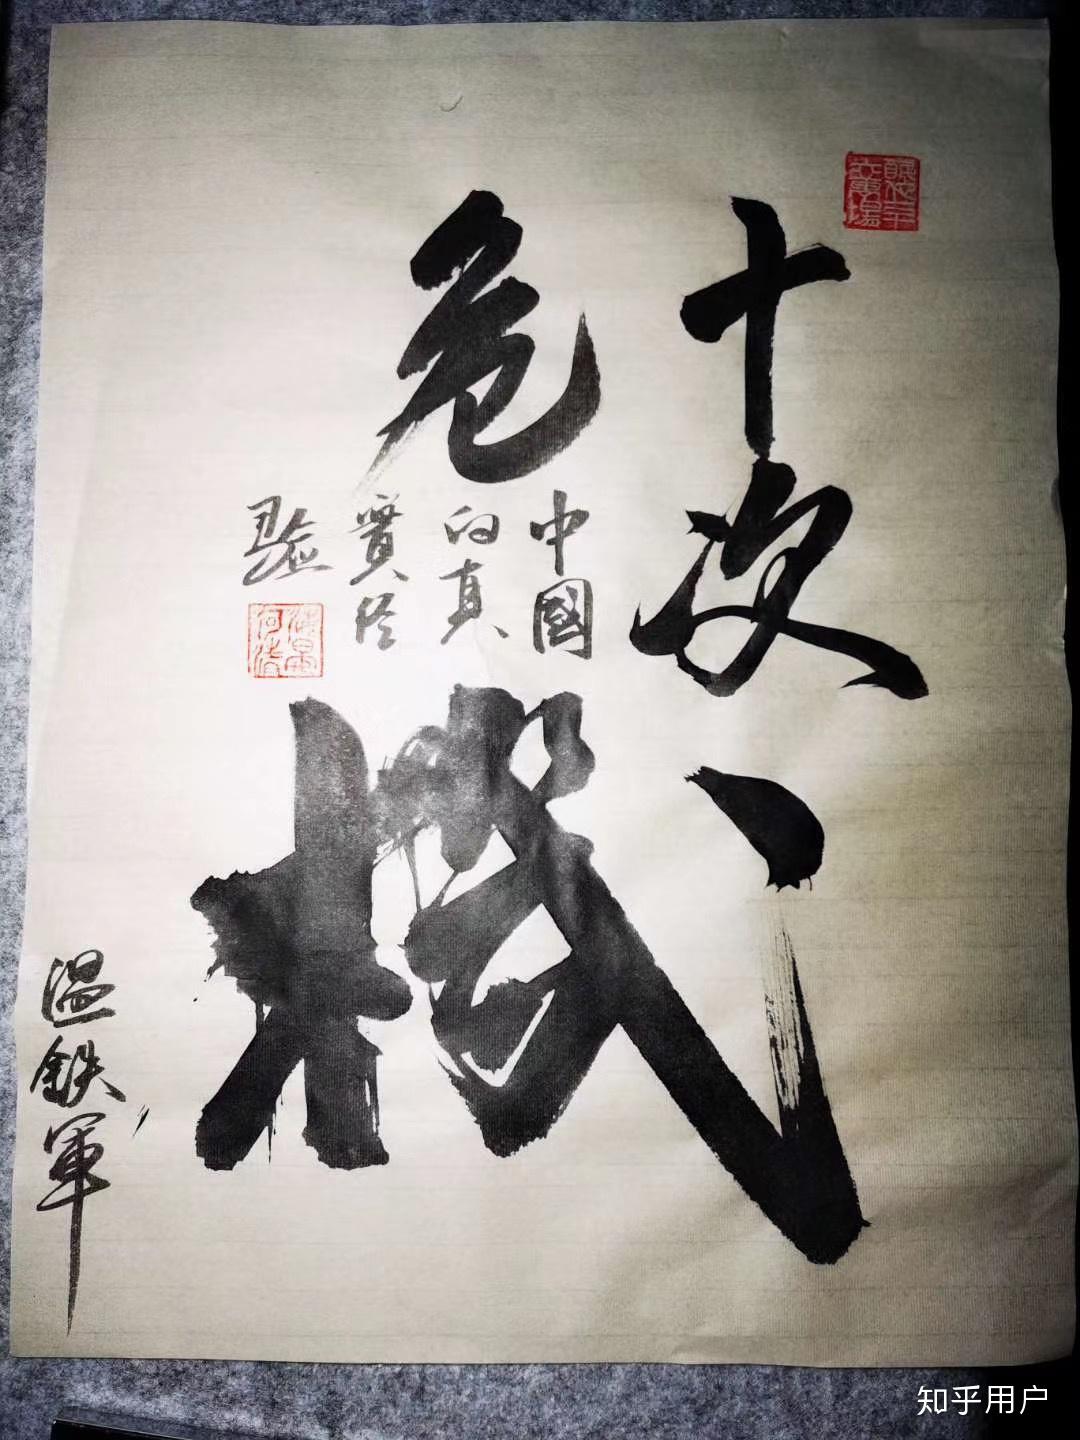 十次
危機
中國
的真
實經
驗
温鉄軍
知乎用户